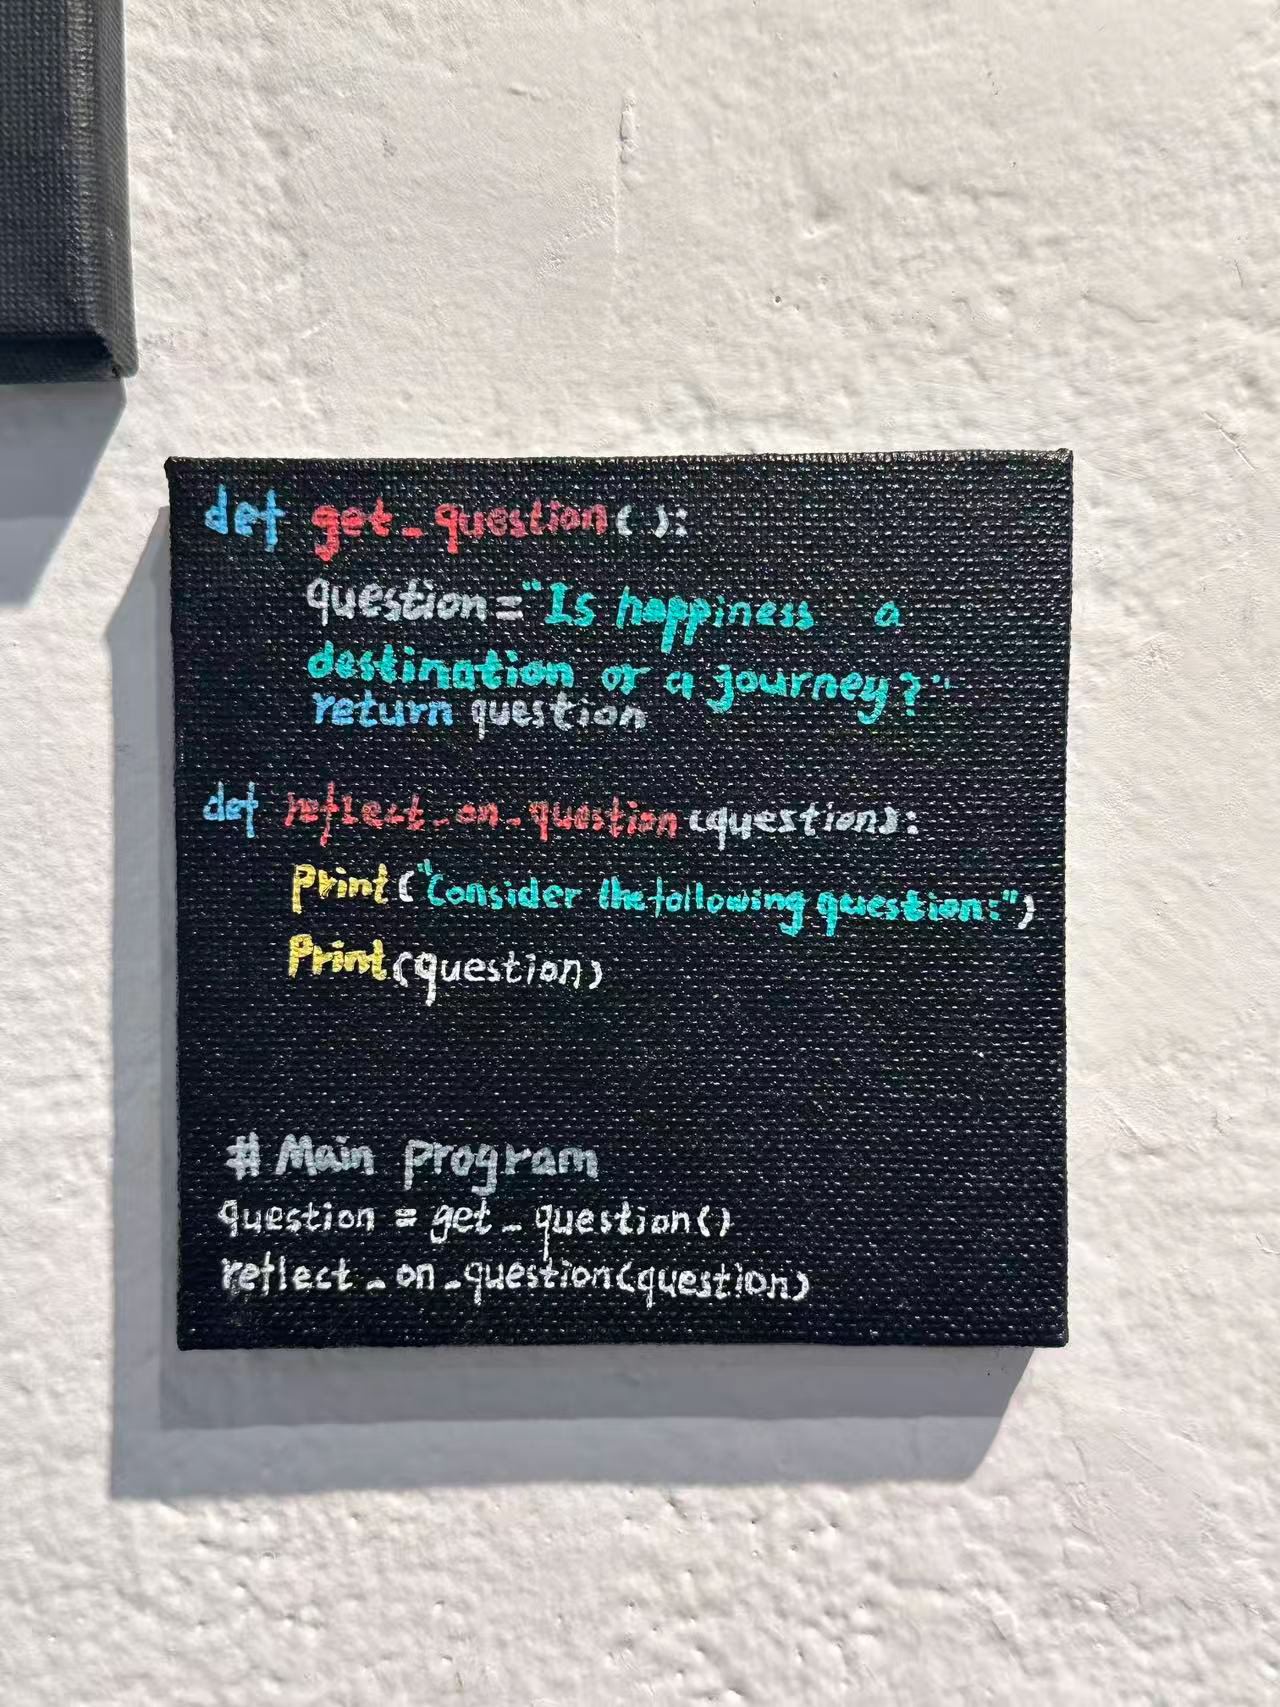 def get_question():
question="Is happiness a
destination or a journey?"
return question
def reflect_on_question(question):
Print("Consider the following question:")
Print(question)
# Main program
question = get_question()
reflect_on_question(question)